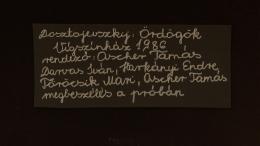 Dosztojevszkij: Ördögök
Vígszínház 1986
rendező: Ascher Tamás
Darvas Iván, Harkányi Endre,
Törőcsik Mari, Ascher Tamás
megbeszélés a próbán